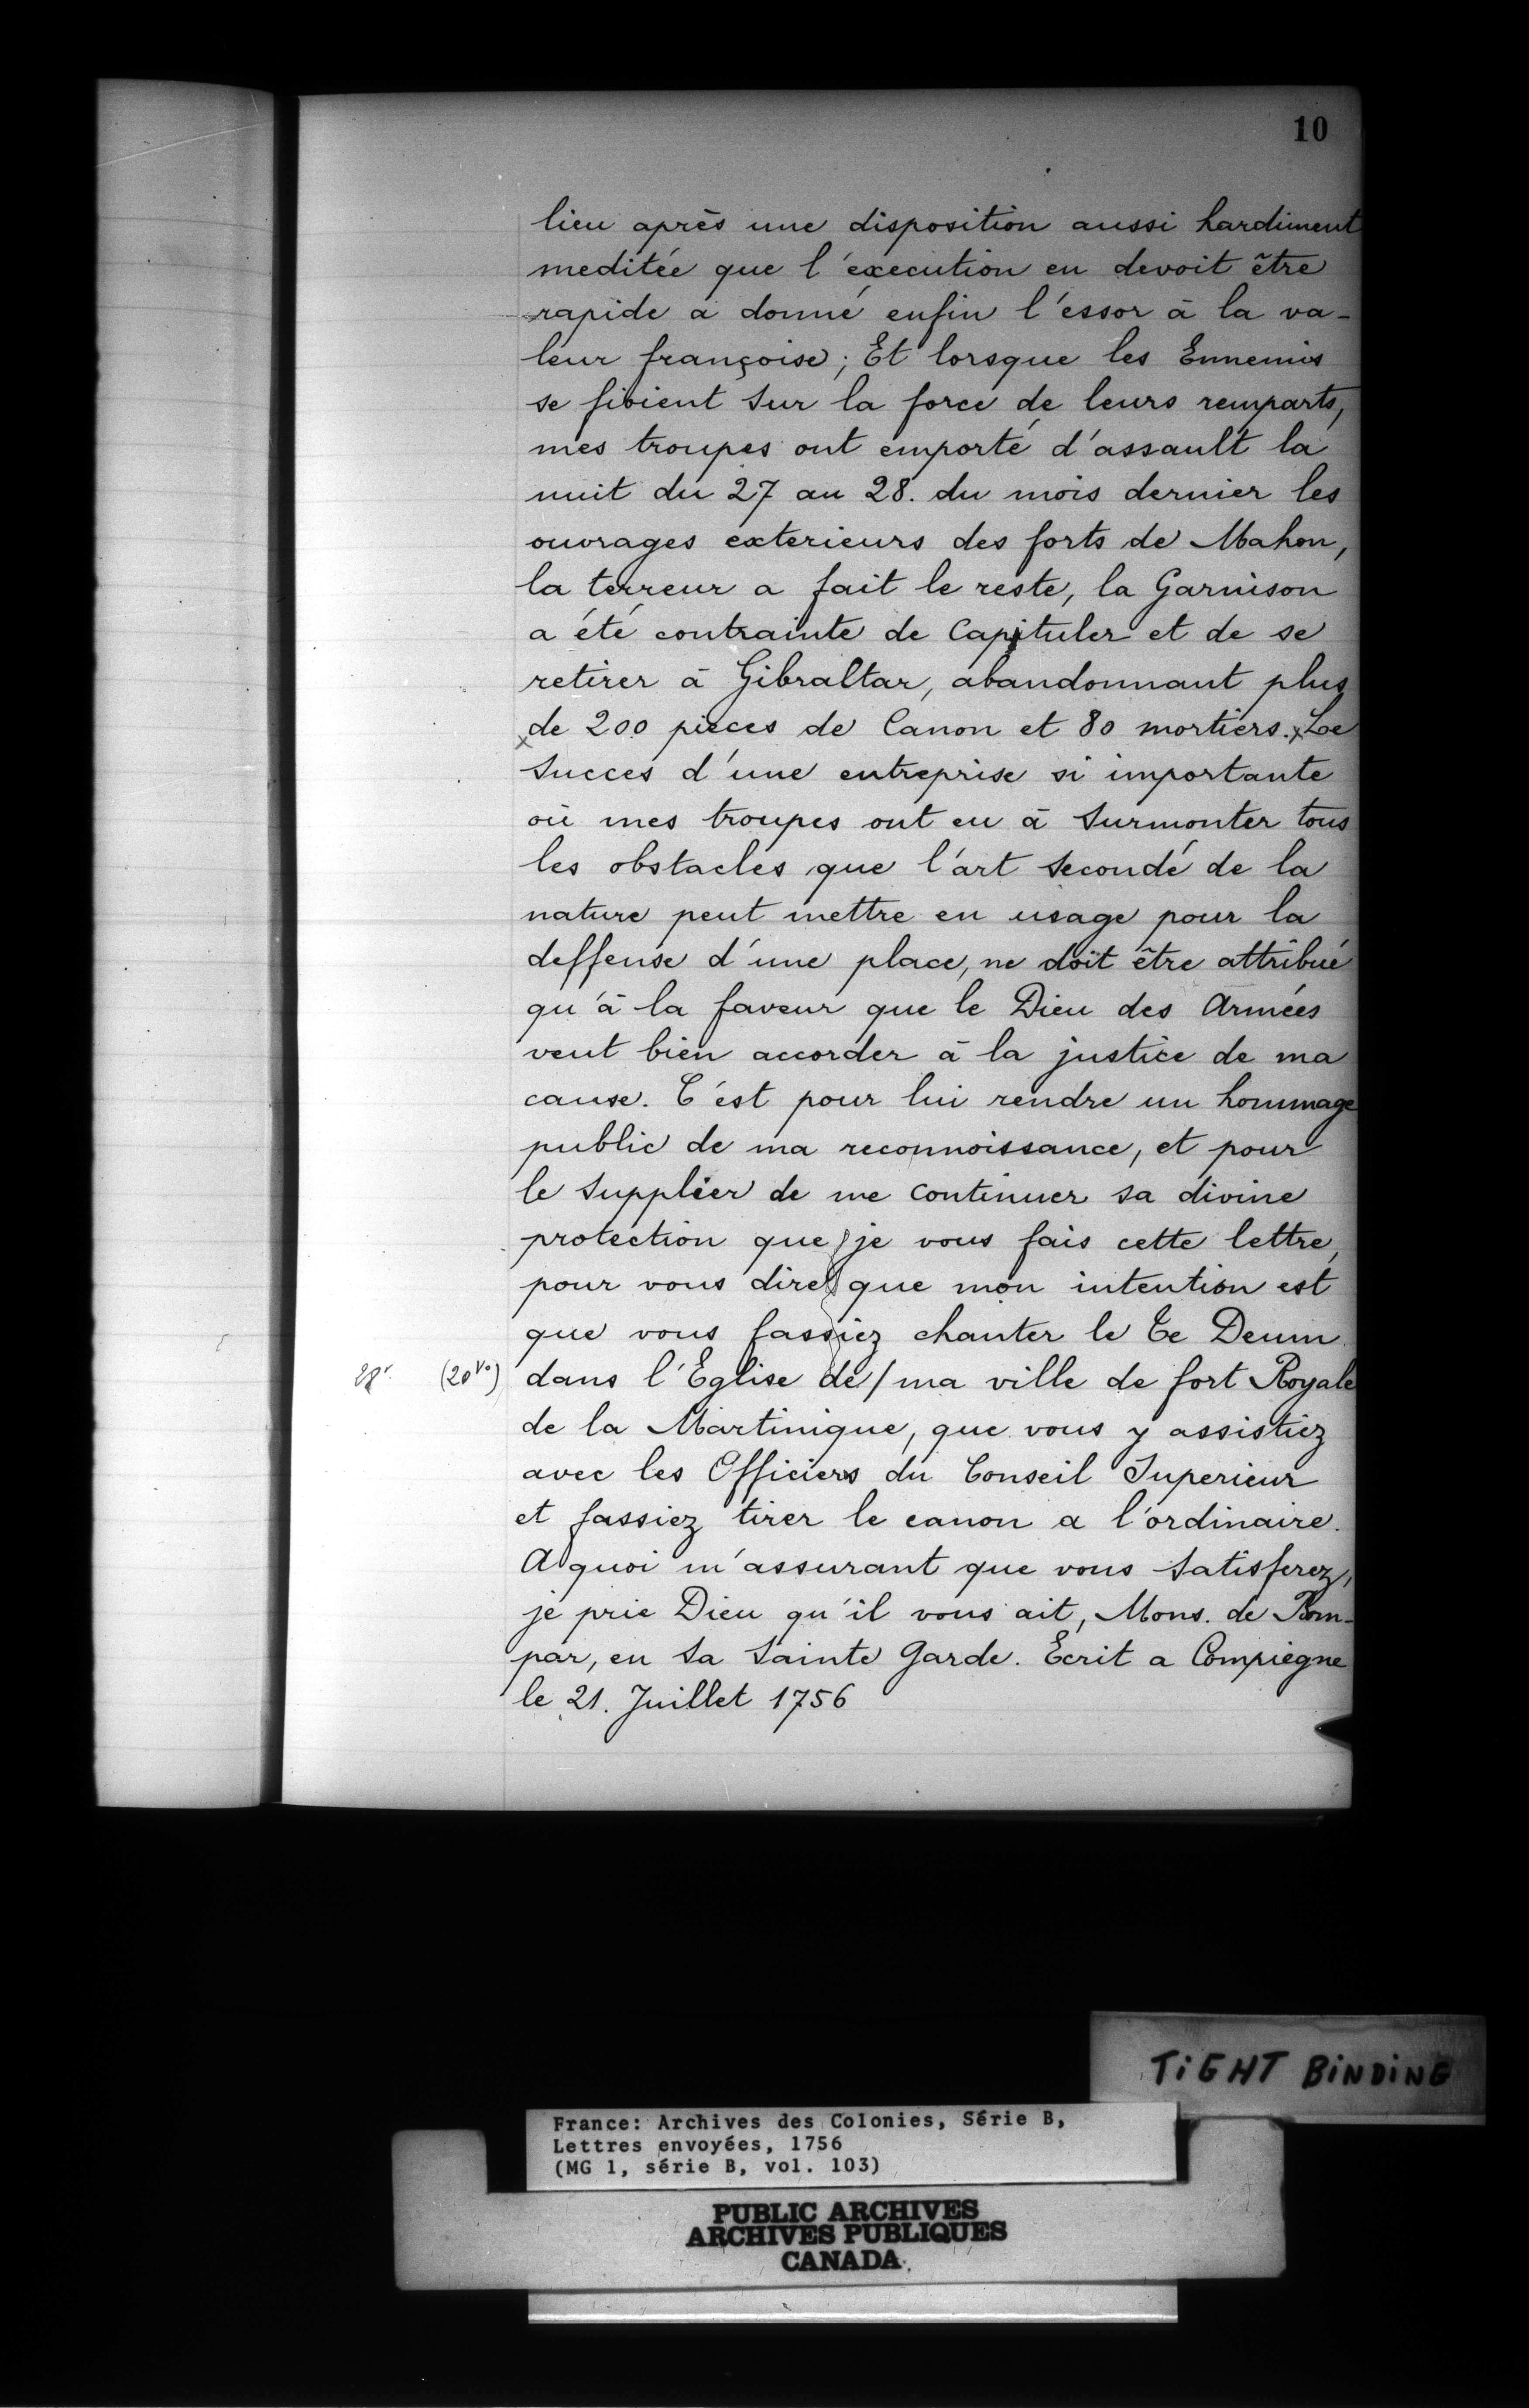 10
lieu après une disposition aussi hardiment
meditée que l'éxecution en devoit être
rapide a donné enfin l'éssor à la va-
leur françoise; Et lorsque les Ennemis
se fioient sur la force de leurs remparts,
mes troupes ont emporté d'assault la
nuit du 27 au 28. du mois dernier les
ouvrages exterieurs des forts de Mahon,
la terreur a fait le reste, la Garnison
a été contrainte de Capituler et de se
retirer à Gibraltar, abandonnant plus
x de 200 pièces de Canon et 80 mortiers. x Le
succes d'une entreprise si importante
où mes troupes ont eu à surmonter tous
les obstacles que l'art secondé de la
nature peut mettre en usage pour la
deffense d'une place, ne doit être attribué
qu'à la faveur que le Dieu des Armées
veut bien accorder à la justice de ma
cause. C'est pour lui rendre un hommage
public de ma reconnoissance, et pour
le supplier de me continuer sa divine
protection que je vous fais cette lettre,
pour vous dire que mon intention est
que vous fassiez chanter le Te Deum
(20 vº) dans l'Eglise de / ma ville de fort Royale
de la Martinique, que vous y assistiez
avec les Officiers du Conseil Superieur
et fassiez tirer le canon a l'ordinaire.
A quoi m'assurant que vous satisferez,
je prie Dieu qu'il vous ait, Mons. de Bom-
par, en sa sainte Garde. Ecrit a Compiègne
le 21. Juillet 1756
TIGHT BINDING
France: Archives des Colonies, Série B,
Lettres envoyées, 1756
(MG 1, série B, vol. 103)
PUBLIC ARCHIVES
ARCHIVES PUBLIQUES
CANADA